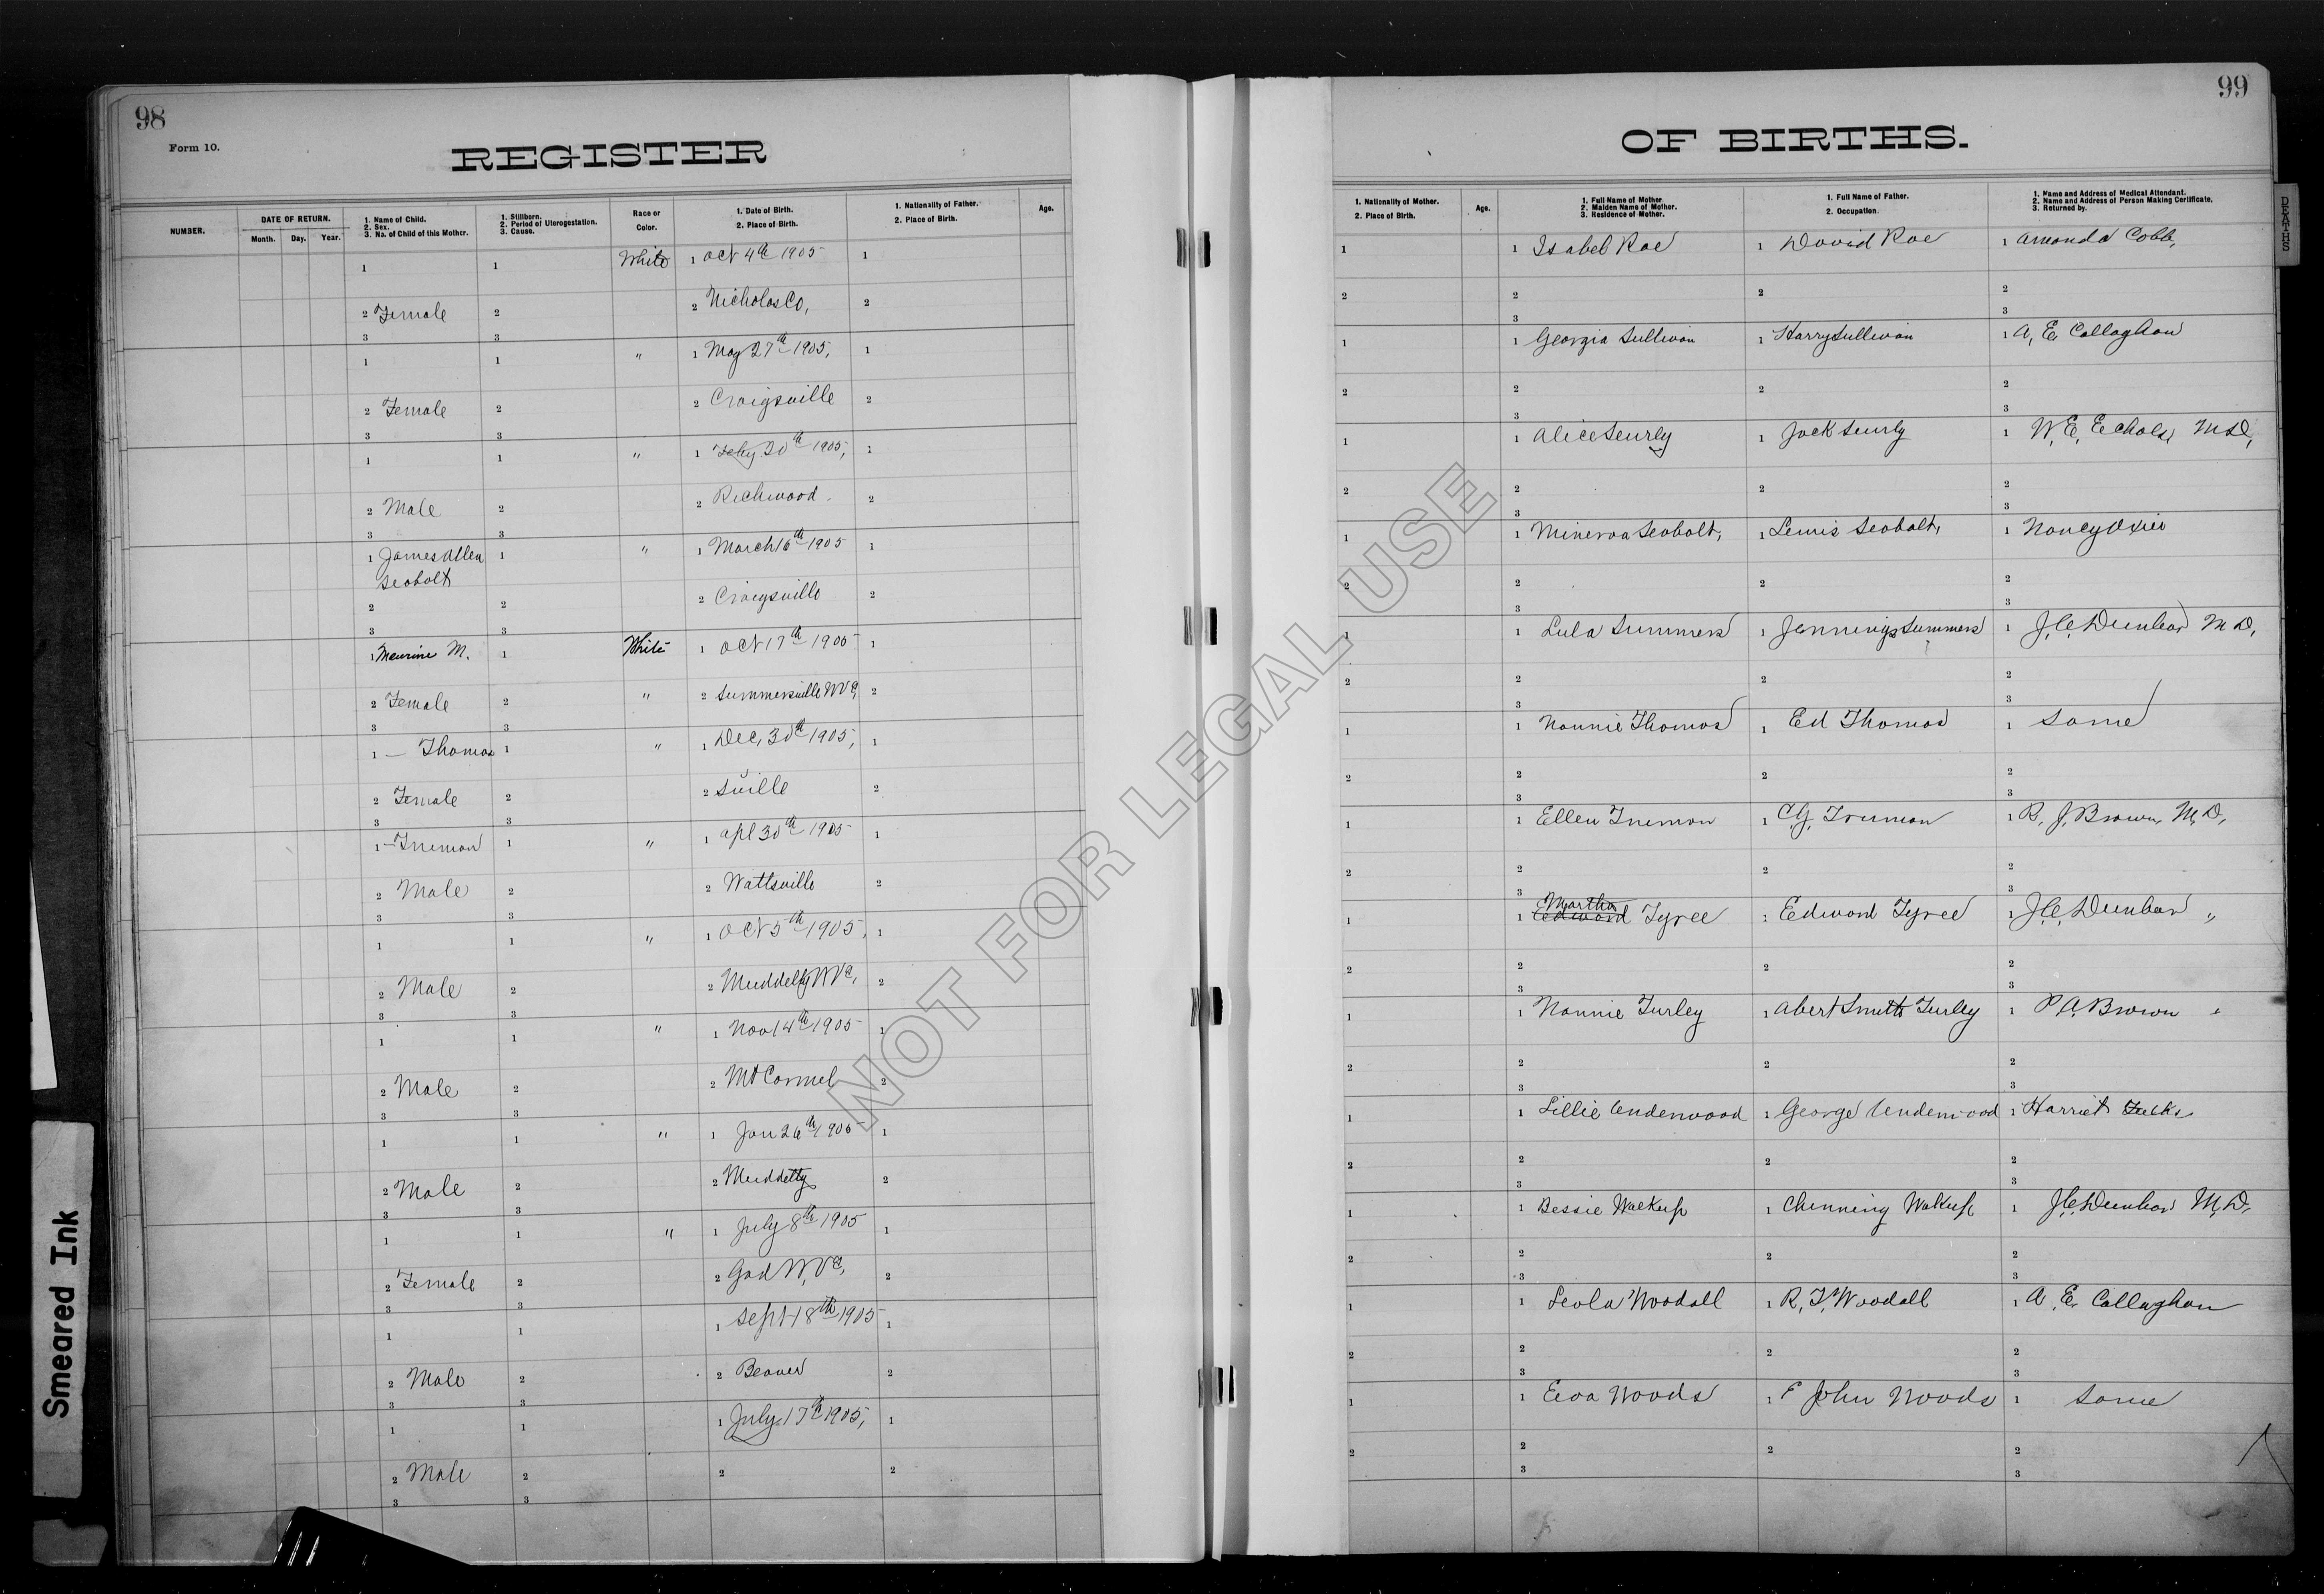 98
Form 10.
REGISTER
NUMBER.
DATE OF RETURN.
Month. Day. Year.
1. Name of Child.
2. Sex.
3. No. of Child of this Mother.
1. Stillborn.
2. Period of Uterogestation.
3. Cause.
Race or
Color.
1. Date of Birth.
2. Place of Birth.
1. Nationality of Father.
2. Place of Birth.
Age.
1 1 White 1 Oct 4th 1905 1
2 Female 2 2 Nicholas Co, 2
3 3
1 1 " 1 May 27th 1905, 1
2 Female 2 2 Craigsville 2
3 3
1 1 " 1 Feby 20th 1905, 1
2 Male 2 2 Richwood 2
3 3
1 James Allen 1 " 1 March 16th 1905 1
Seabolt
2 2 2 Craigsville 2
3 3
1 Maurine M. 1 White 1 Oct 17th 1905 1
2 Female 2 " 2 Summersville WVa, 2
3 3
1 — Thomas 1 " 1 Dec, 30th 1905, 1
2 Female 2 2 Sville 2
3 3
1 — Truman 1 " 1 Apl 30th 1905 1
2 Male 2 2 Wattsville 2
3 3
1 1 " 1 Oct 5th 1905, 1
2 Male 2 2 Muddelty WVa, 2
3 3
1 1 " 1 Nov 14th 1905 1
2 Male 2 2 Mt Carmel 2
3 3
1 1 " 1 Jan 26th 1905 1
2 Male 2 2 Muddelty 2
3 3
1 1 " 1 July 8th 1905 1
2 Female 2 2 Gad W, Va, 2
3 3
1 1 1 Sept 18th 1905 1
2 Male 2 2 Beaver 2
3 3
1 1 1 July 17th 1905, 1
2 Male 2 2 2
3 3
99
OF BIRTHS.
1. Nationality of Mother.
2. Place of Birth.
Age.
1. Full Name of Mother
2. Maiden Name of Mother.
3. Residence of Mother.
1. Full Name of Father.
2. Occupation
1. Name and Address of Medical Attendant.
2. Name and Address of Person Making Certificate.
3. Returned by.
1 1 Isabel Rae 1 David Rae 1 Amanda Cobb,
2 2 2 2
3 3
1 1 Georgia Sullivan 1 Harry Sullivan 1 A, E, Callaghan
2 2 2 2
3 3
1 1 Alice 1 Jack 1 W, E, Echols, M D,
2 2 2 2
3 3
1 1 Minerva Seabolt, 1 Lewis Seabolt, 1 Nancy
2 2 2 2
3 3
1 1 Lula Summers 1 Jennings Summers 1 J, C, Dunbar M D,
2 2 2 2
3 3
1 1 Nannie Thomas 1 Ed Thomas 1 Same
2 2 2 2
3 3
1 1 Ellen Truman 1 C. G. Truman 1 R, J, Brown, M, D,
2 2 2 2
3 3
Martha
1 1 Edward Tyree 1 Edward Tyree 1 J, C, Dunbar "
2 2 2 2
3 3
1 1 Nannie Turley 1 Abert Smith Turley 1 P A, Brown "
2 2 2 2
3 3
1 1 Lillie Underwood 1 George Underwood 1 Harriet
2 2 2 2
3 3
1 1 Bessie Walkup 1 Chenning Walkup 1 J, C, Dunbar M, D,
2 2 2 2
3 3
1 1 Leola Woodall 1 R, T, Woodall 1 A, E, Callaghan
2 2 2 2
3 3
1 1 Eva Woods 1 John Woods 1 Same
2 2 2 2
3 3
DEATHS
Smeared Ink
NOT FOR LEGAL USE